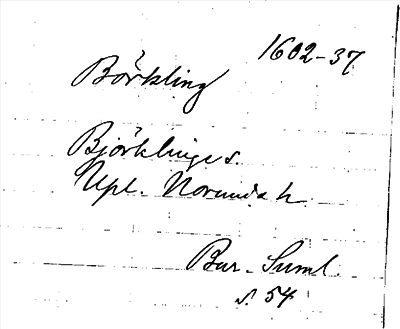 1602-37
Börkling
Björklinge s.
Upl. Norunda h.
Bur. Suml.
s. 54